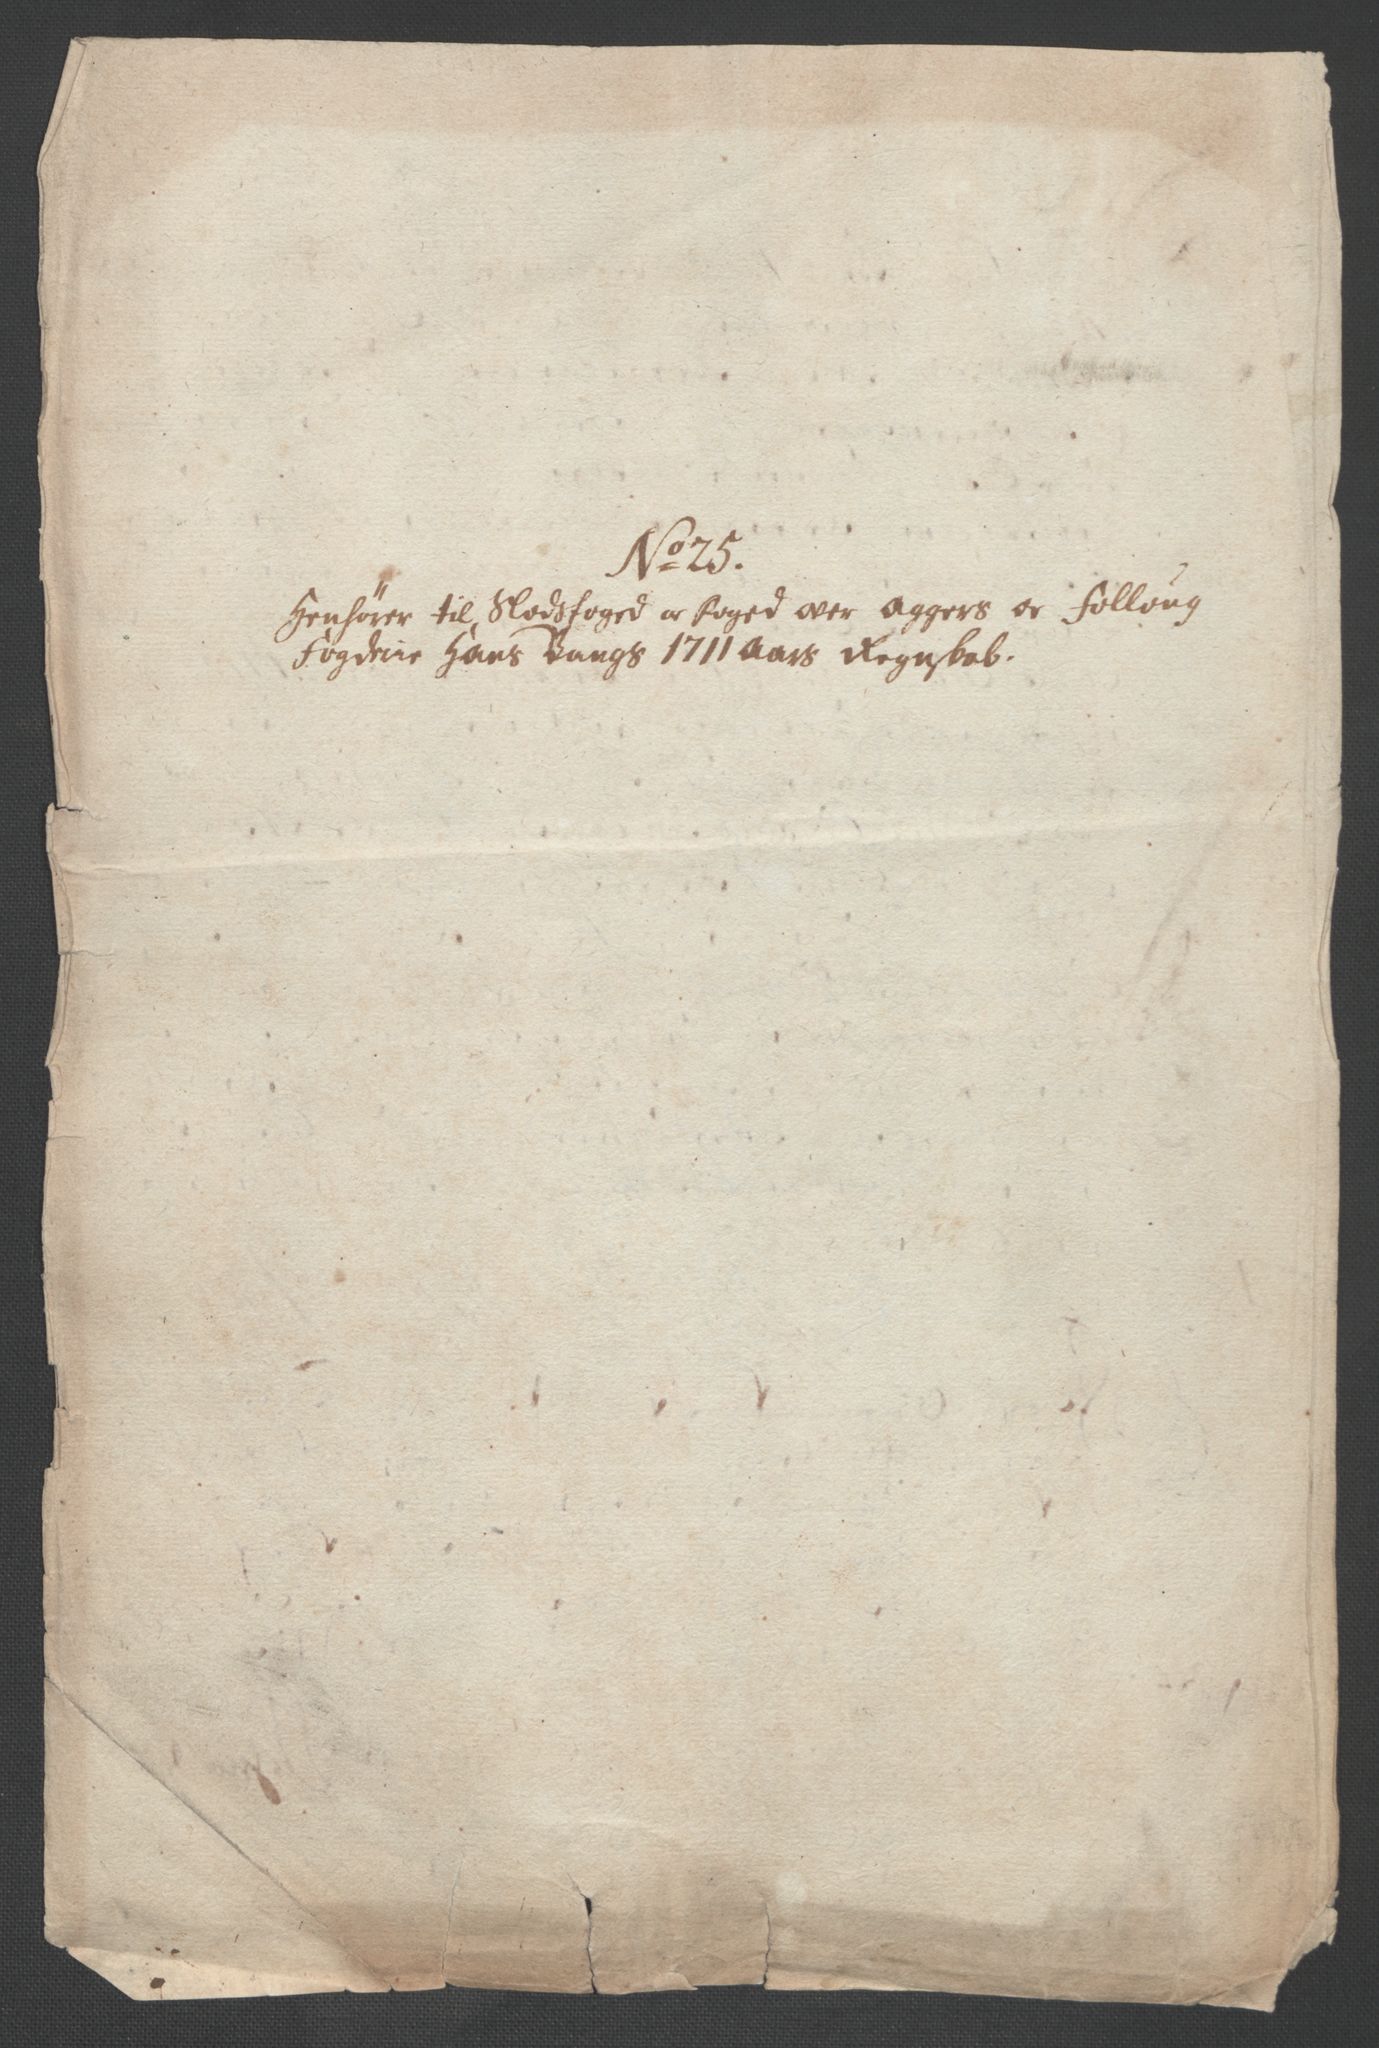 No 25.
Henhører til Slodsfoged oc Foged over Aggers oc Folloug
Fogderie Hans Bangs 1711 Aars Regnskab.